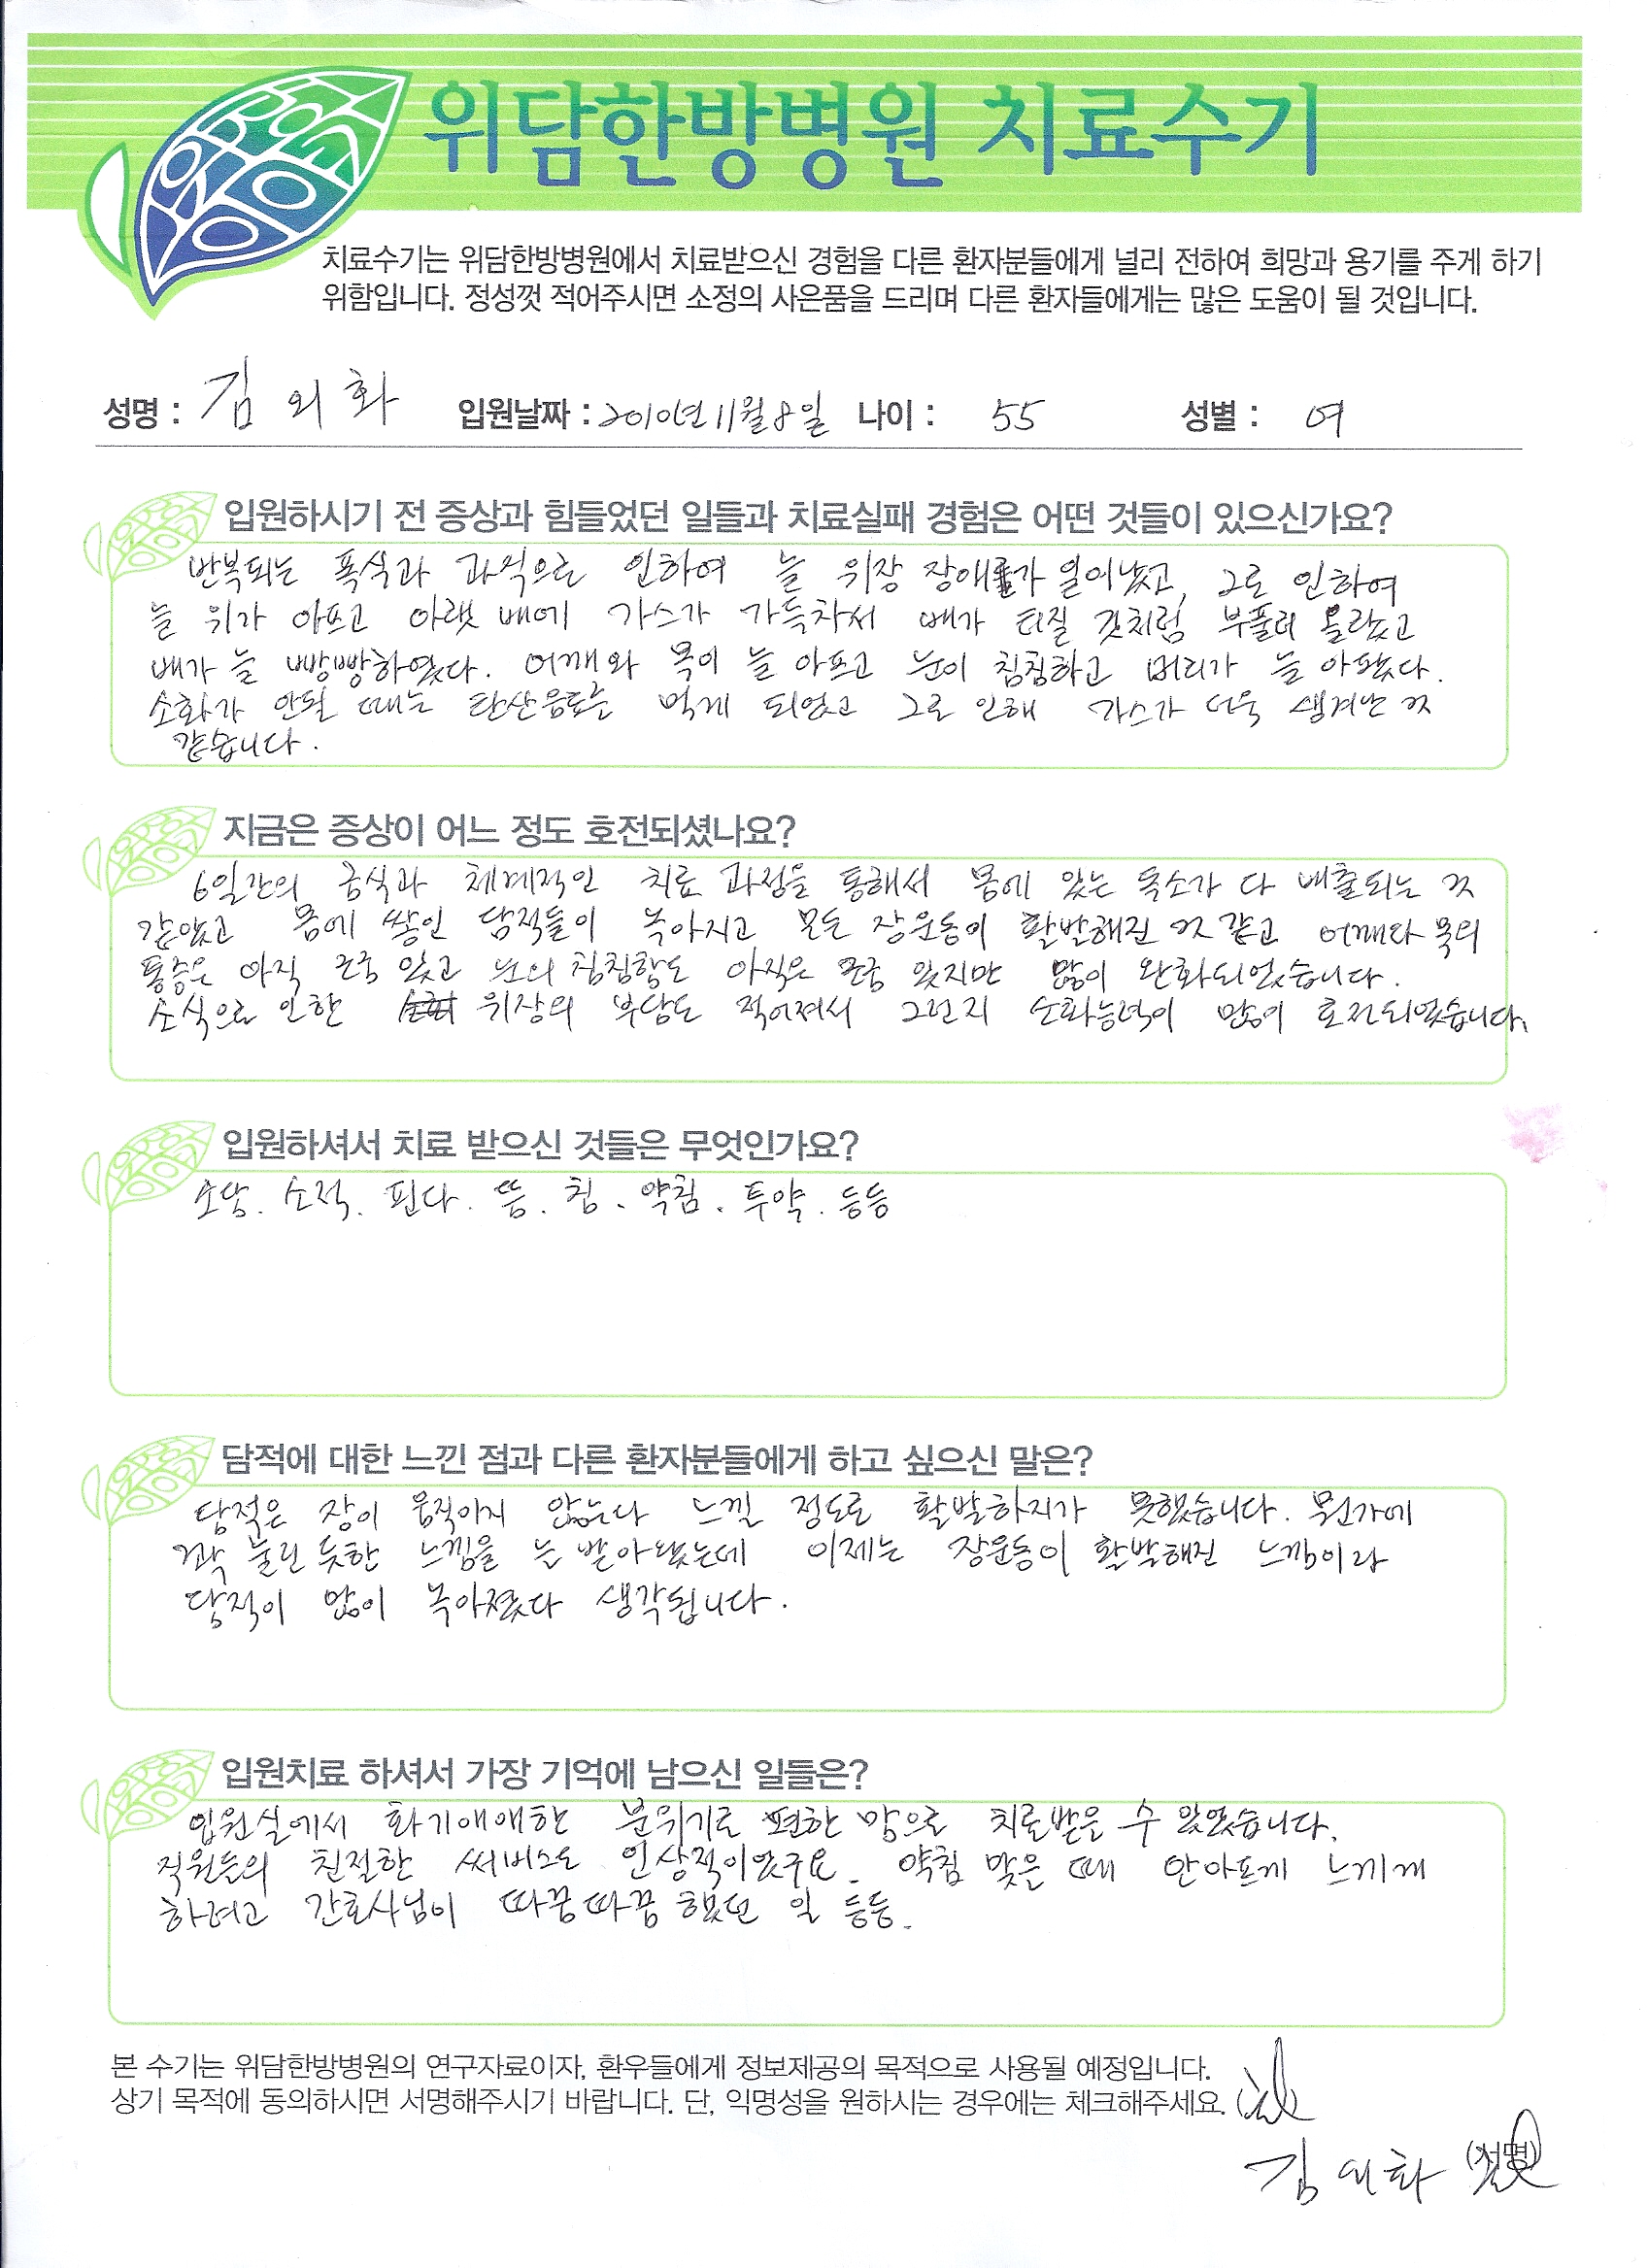 위담한방병원 치료수기
치료수기는 위담한방병원에서 치료받으신 경험을 다른 환자분들에게 널리 전하여 희망과 용기를 주게 하기
위함입니다. 정성껏 적어주시면 소정의 사은품을 드리며 다른 환자들에게는 많은 도움이 될 것입니다.
성명 : 김외화 입원날짜 : 2010년 11월 8일 나이 : 55 성별 : 여
입원하시기 전 증상과 힘들었던 일들과 치료실패 경험은 어떤 것들이 있으신가요?
반복되는 폭식과 과식으로 인하여 늘 위장 장애가 일어났고, 그로 인하여
늘 위가 아프고 아랫 배에 가스가 가득차서 배가 터질 것처럼 부풀러 올랐고
배가 늘 빵빵하였다. 어깨와 목이 늘 아프고 눈이 침침하고 머리가 늘 아팠다.
소화가 안될 때는 탄산음료를 먹게 되었고 그로 인해 가스가 더욱 생겨난 것
같습니다.
지금은 증상이 어느 정도 호전되셨나요?
6일간의 금식과 체계적인 치료 과정을 통해서 몸에 있는 독소가 다 배출되는 것
같았고 몸에 쌓인 담적들이 녹아지고 모든 장운동이 활발해진 것 같고 어깨와 목의
통증은 아직 조금 있고 눈의 침침함도 아직은 조금 있지만 많이 완화되었습니다.
소식으로 인한 위장의 부담도 적어져서 그런지 소화능력이 많이 호전되었습니다.
입원하셔서 치료 받으신 것들은 무엇인가요?
소담. 소적. 핀다. 뜸. 침. 약침. 투약. 등등
담적에 대한 느낀 점과 다른 환자분들에게 하고 싶으신 말은?
담적은 장이 움직이지 않는다 느낄 정도로 활발하지가 못했습니다. 뭔가에
꽉 눌린 듯한 느낌을 늘 받아왔는데 이제는 장운동이 활발해진 느낌이라
담적이 많이 녹아졌다 생각됩니다.
입원치료 하셔서 가장 기억에 남으신 일들은?
입원실에서 화기애애한 분위기로 편한 맘으로 치료받을 수 있었습니다.
직원들의 친절한 써비스도 인상적이었구요. 약침 맞을 때 안아프게 느끼게
하려고 간호사님이 따끔따끔 했던 일 등등.
본 수기는 위담한방병원의 연구자료이자, 환우들에게 정보제공의 목적으로 사용될 예정입니다.
상기 목적에 동의하시면 서명해주시기 바랍니다. 단, 익명성을 원하시는 경우에는 체크해주세요.
김외화 (서명)